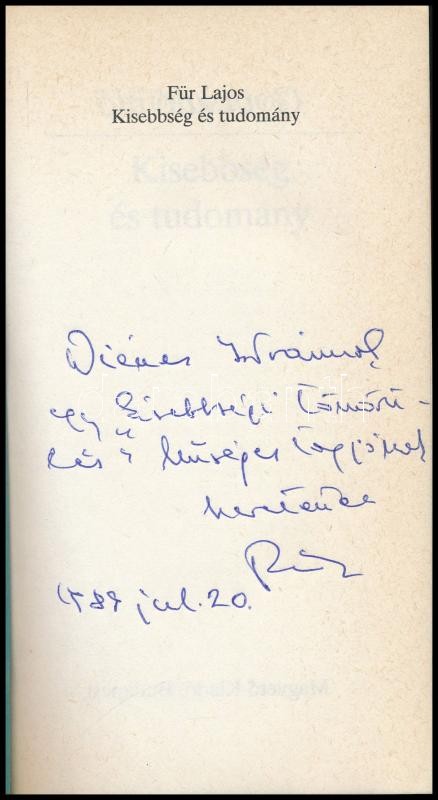 Für Lajos
Kisebbség és tudomány
Kisebbség
és tudomány
Diénes Istvánnak
egy "kisebbségi tömörü-
lés" hűséges tagjának
szeretettel
Für
1989 júl. 20.
Magvető Kiadó Budapest